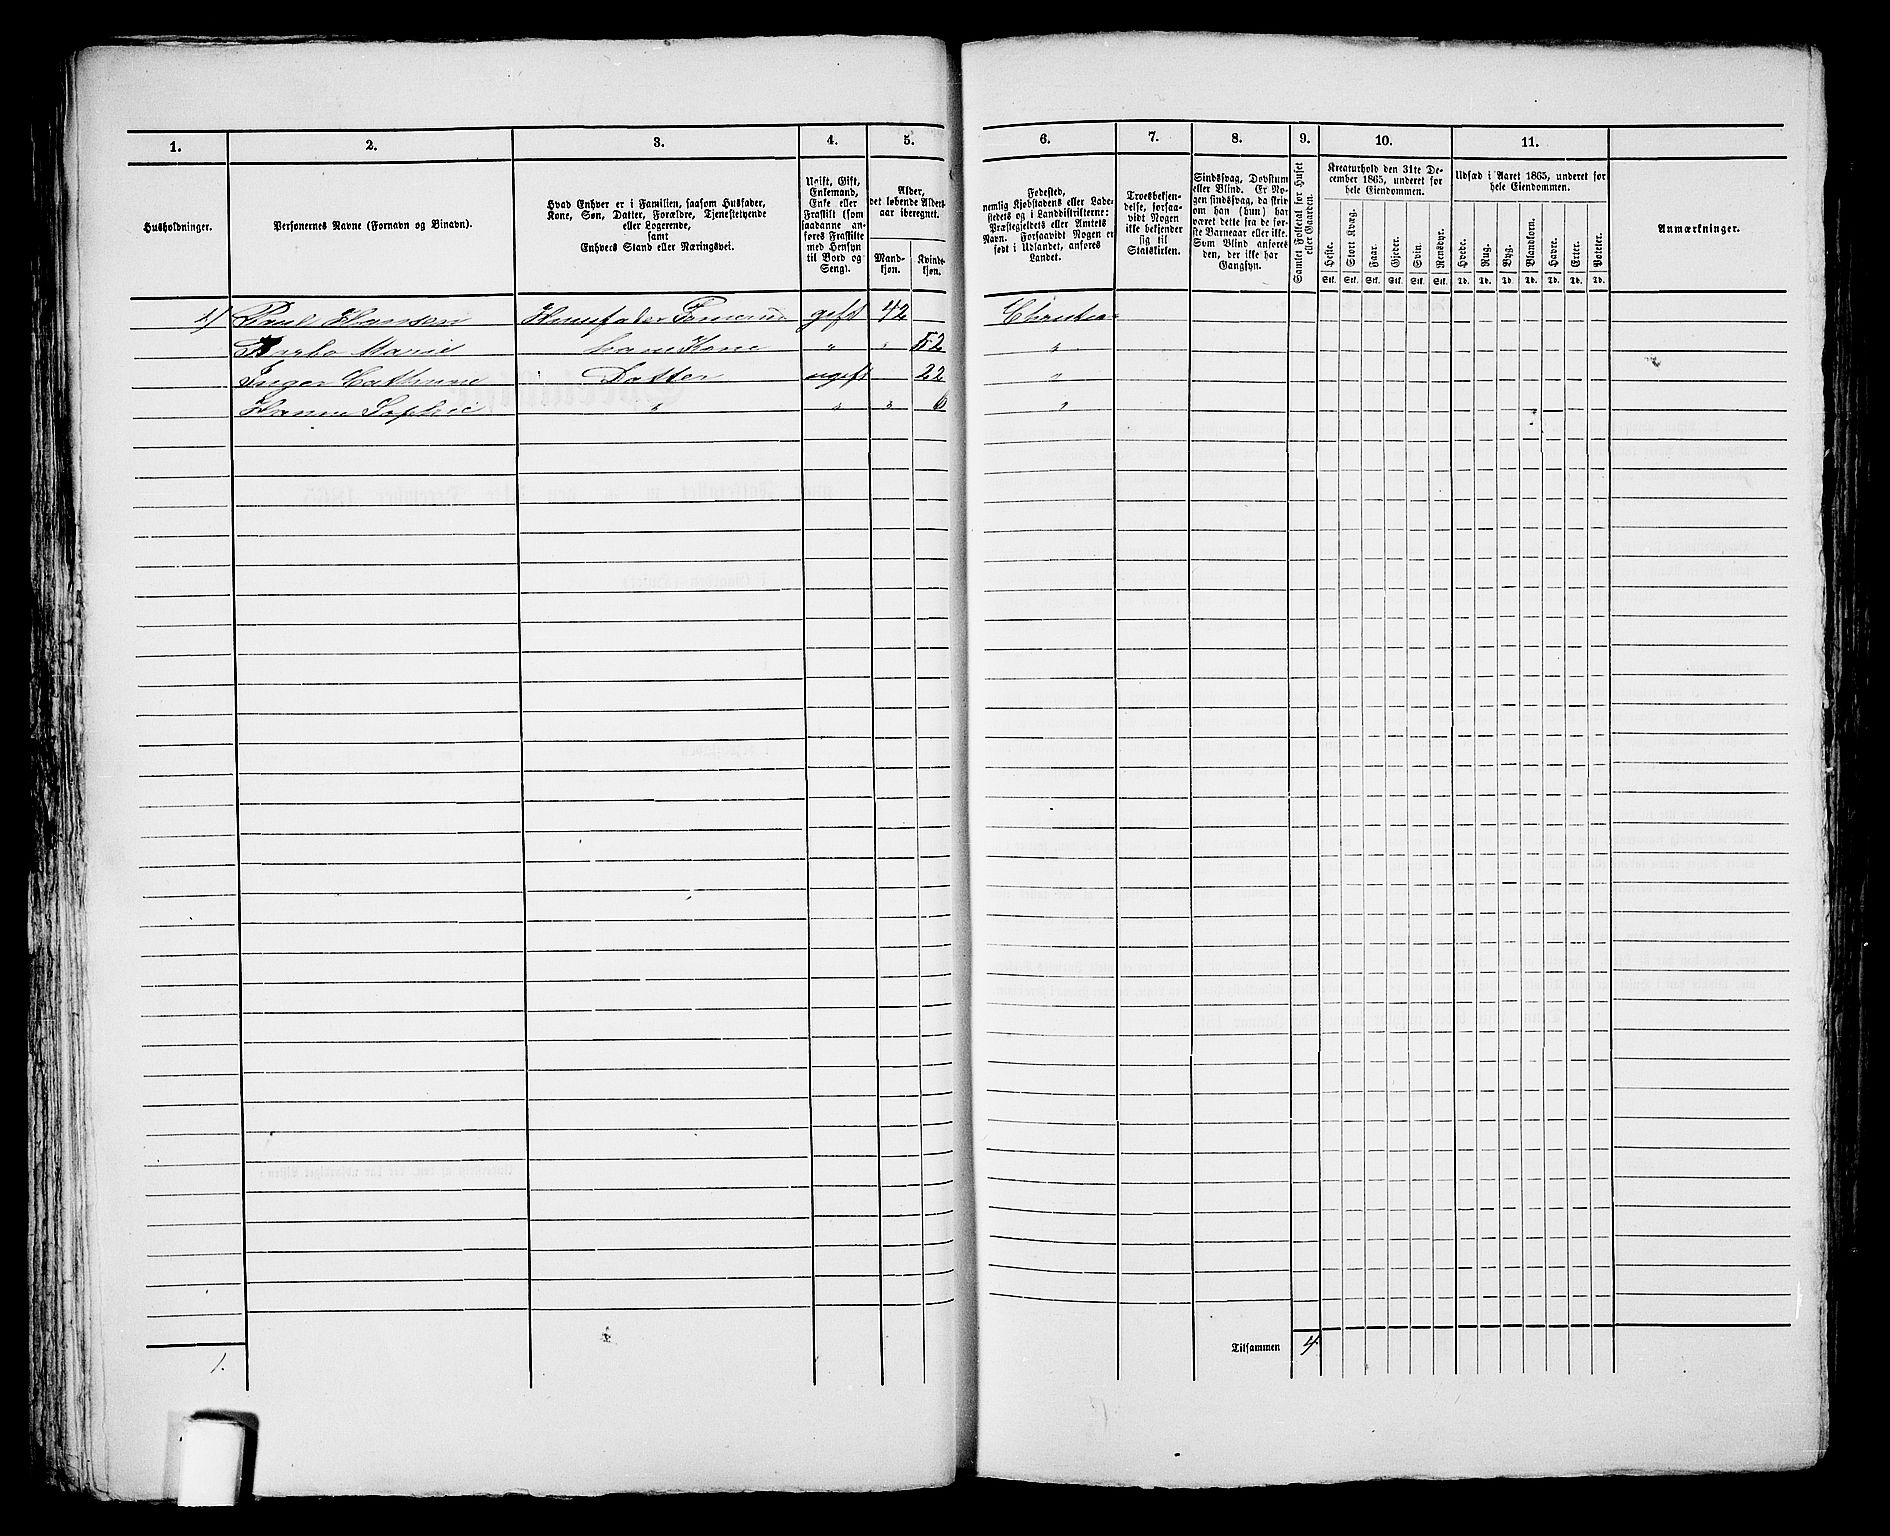 1. 2. 3. 4. 5. 6. 7. 8. 9. 10. 11.
Husholdninger.
Personernes Navne (Fornavn og Binavn).
Hvad Enhver er i Familien, saasom Husfader,
Kone, Søn, Datter, Forældre, Tjenestetyende
eller Logerende,
samt
Enhvers Stand eller Næringsvei.
Ugift, Gift,
Enkemand,
Enke eller
Fraskilt (som
saadanne an-
føres Fraskilte
med Hensyn
til Bord og
Seng).
Alder,
det løbende Alders-
aar iberegnet.
Mand-
kjøn.
Kvinde-
kjøn.
Fødested,
nemlig Kjøbstadens eller Lade-
stedets og i Landdistrikterne:
Præstegjeldets eller Amtets
Navn. Forsaavidt Nogen er
født i Udlandet, anføres
Landet.
Troesbekjen-
delse, forsaa-
vidt Nogen
ikke bekjender
sig til
Statskirken.
Sindssvag, Døvstum
eller Blind. Er No-
gen sindssvag, da skriv
om han (hun) har
været dette fra de før-
ste Barneaar eller ikke.
Som Blind anføres
den, der ikke har
Gangsyn.
Samlet Folketal for Huset
eller Gaarden.
Kreaturhold den 31te De-
cember 1865, underet for
hele Eiendommen.
Heste.
Stort Kvæg.
Faar.
Gjeder.
Svin.
Rensdyr.
Stk. Stk. Stk. Stk. Stk. Stk.
Udsæd i Aaret 1865, underet for
hele Eiendommen.
Hvede.
Rug.
Byg.
Blandkorn.
Havre.
Erter.
Poteter.
Td. Td. Td. Td. Td. Td. Td.
Anmærkninger.
1) Poul Hansen Huusfader gift 42
Marie hans Kone " " 52 "
Inger Cathrine Datter ugift 22 "
Hanna Sophie " " " 6 "
Tilsammen 4
1.